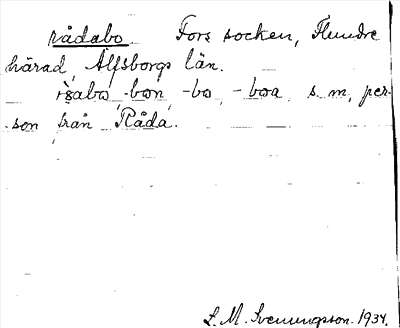 rådabo Fors socken, Flundre
härad, Älfsborgs län.
-bon, -bo, -boa, s. m., per-
son från Råda.
L. M. Svenungsson. 1934.